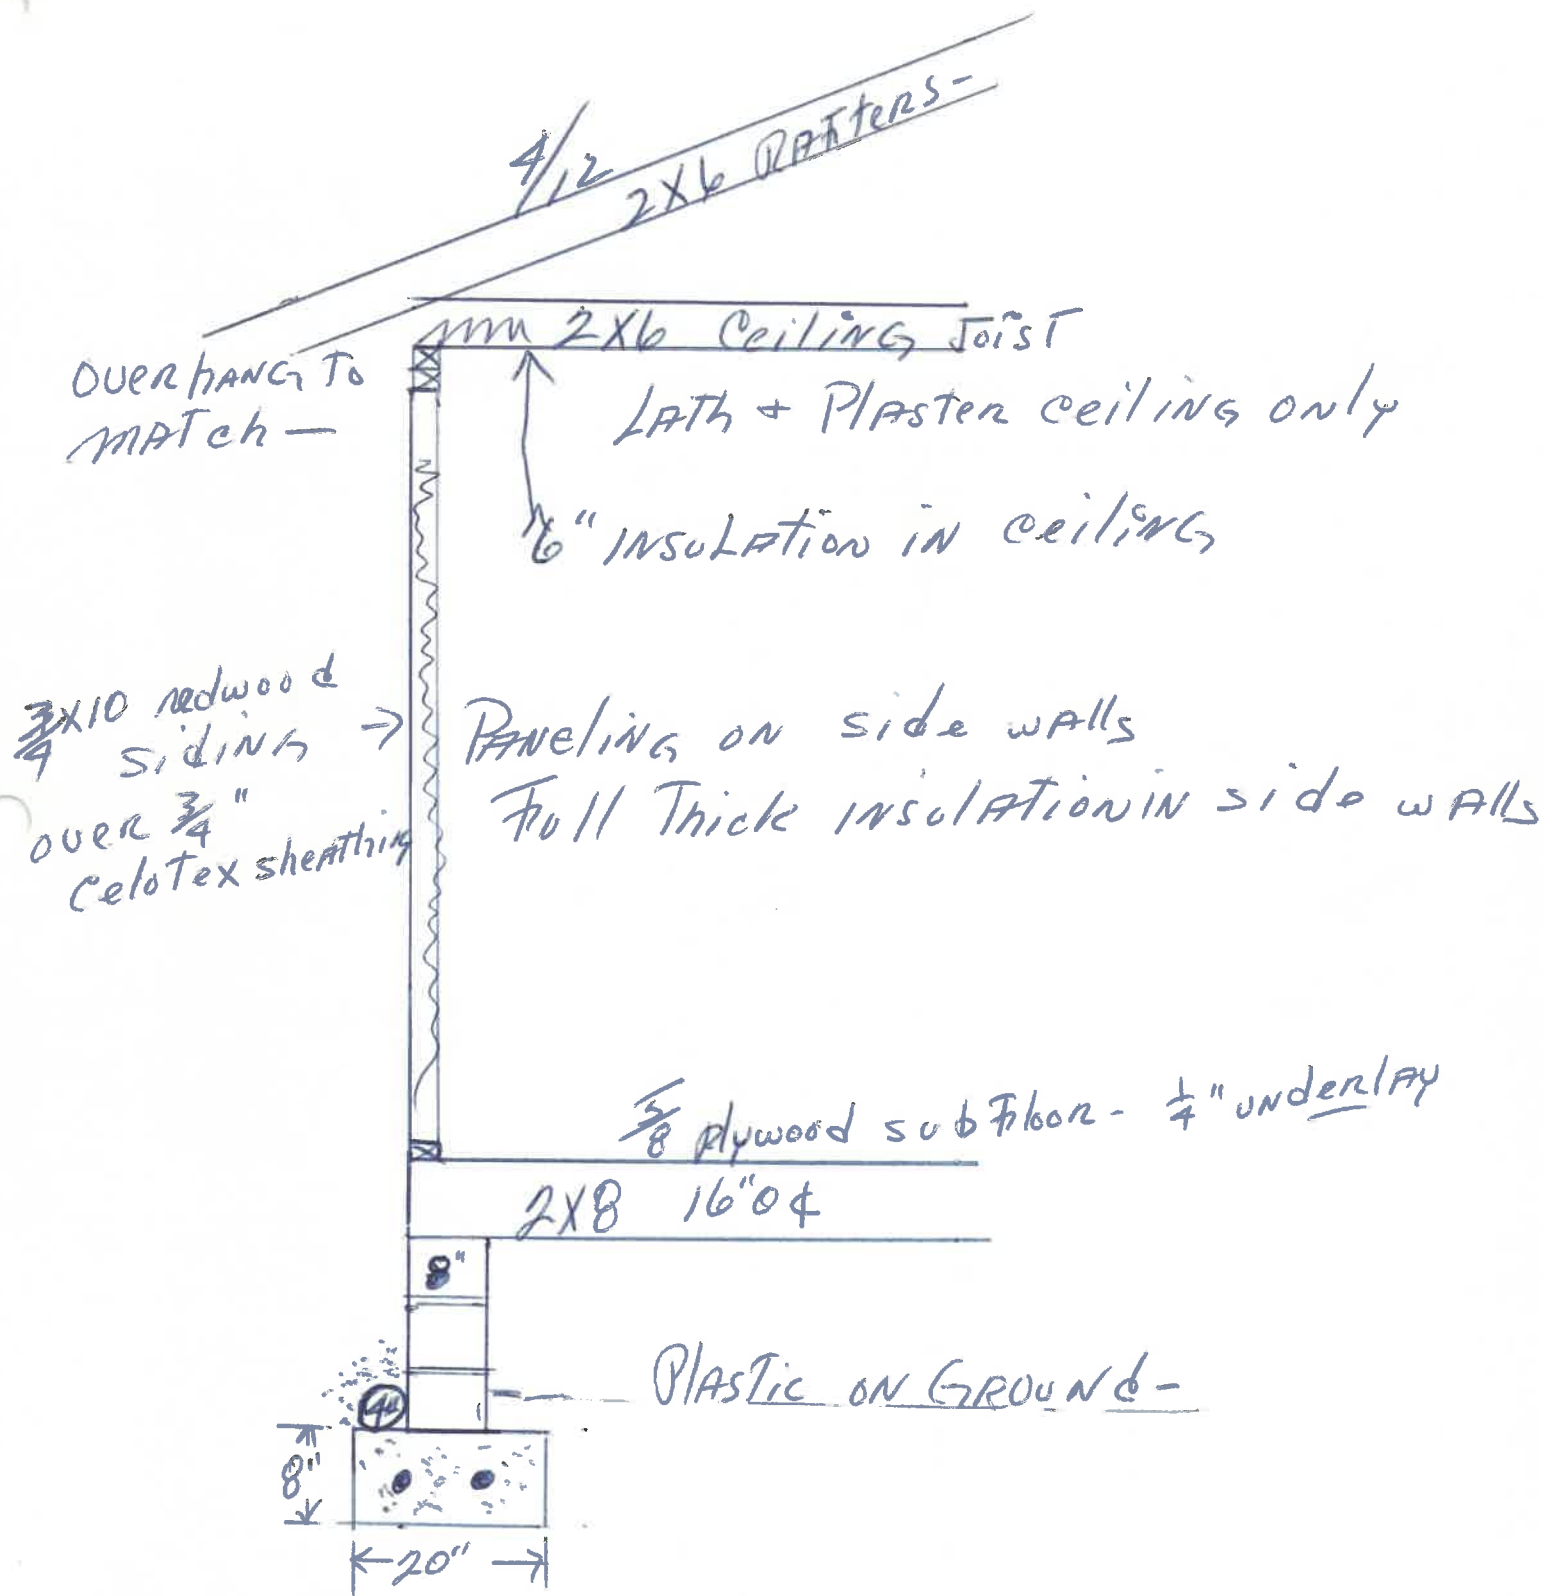 4/12
2X6 RAFTERS-
2X6 CeiliNG JoisT
OVERhANG To
MATch —
LATh + PlAsTeR ceiliNG ONly
6" INSuLATioN iN ceiliNG
3/4X10 redwood
SidiNG
OVER 3/4"
CeloTex sheAthing
PANeliNG ON side wAlls
Full Thick INSulATioN iN side wAlls
5/8 plywood subFlooR - 1/4" uNdeRlAy
2X8 16"O₵
8"
PlAsTic ON GROUNd-
4"
8"
20"